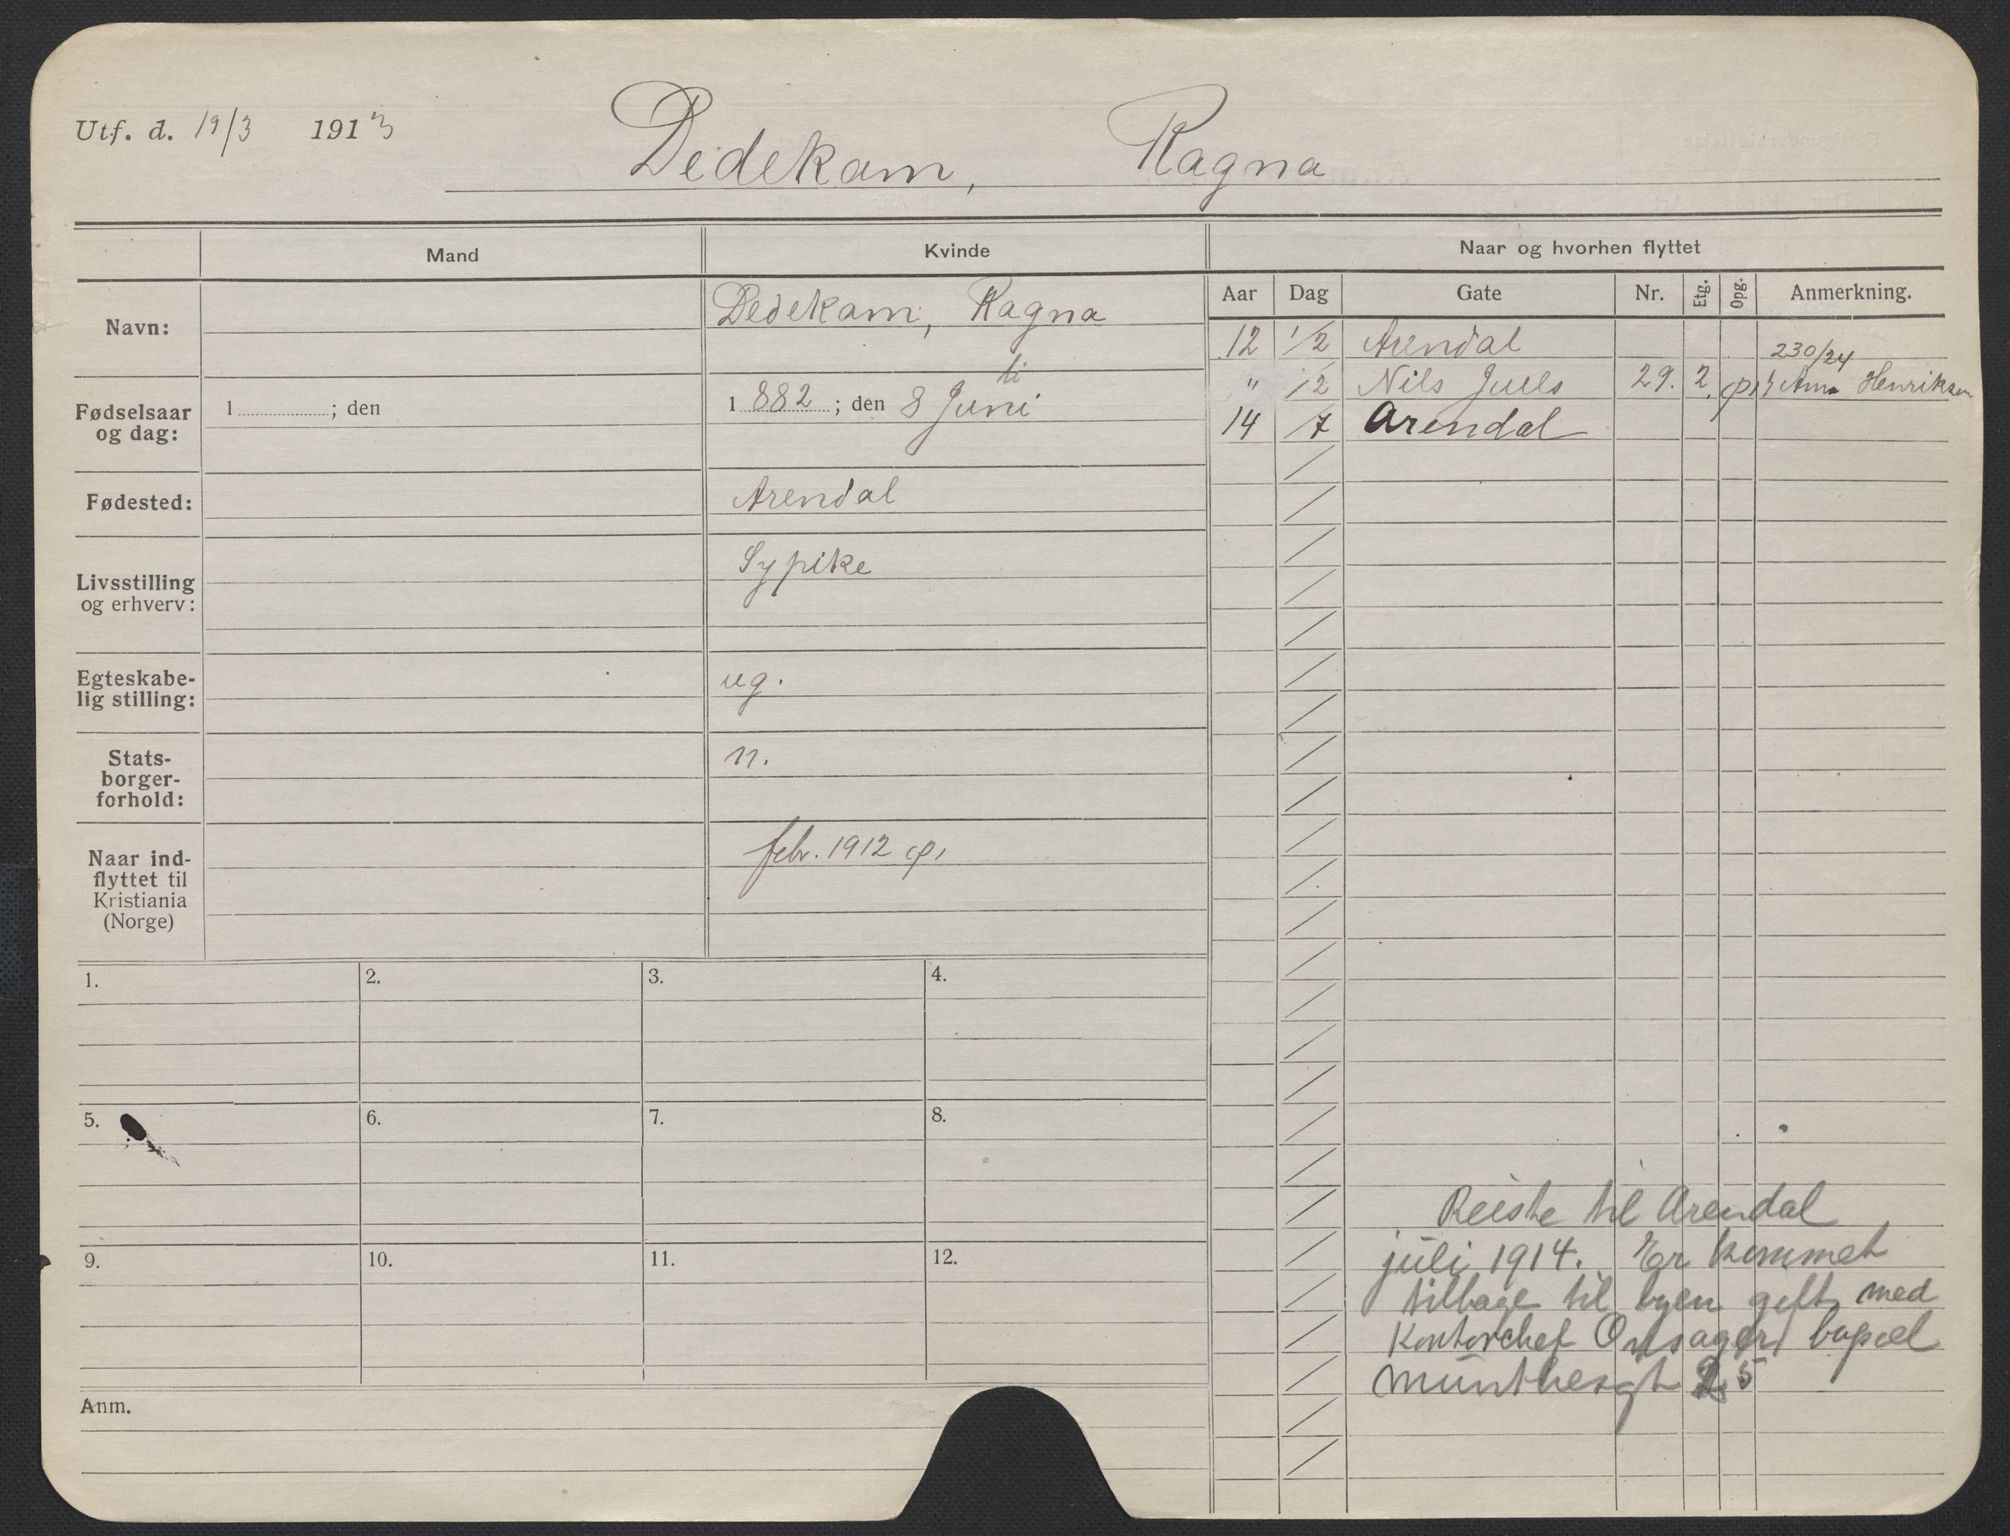 Utf. d. 19/3 1913
Dedekam, Ragna
Mand
Kvinde
Naar og hvorhen flyttet
Navn:
Dedekam, Ragna
Fødselsaar
og dag:
1 ; den
1 882 ; den 8 Juni
li
Fødested:
Arendal
Livsstilling
og erhverv:
Sypike
Egteskabe-
lig stilling:
ug.
Stats-
borger-
forhold:
n.
Naar ind-
flyttet til
Kristiania
(Norge)
febr. 1912
Aar Dag Gate Nr. Etg. Opg. Anmerkning.
12 1/2 Arendal
230/24
" /2 Nils Juels 29. 2. Henriksen
14 /7 Arendal
1. 2. 3. 4.
5. 6. 7. 8.
9. 10. 11. 12.
Anm.
Reiste til Arendal
juli 1914. Er kommet
tilbage til byen gift med
Kontorchef Onsager, bopæl
Munthesgt 25